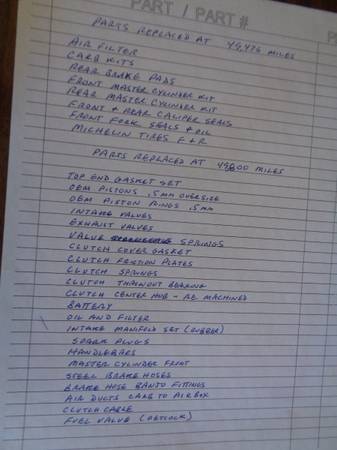 PART / PART #
PARTS REPLACED AT 49,476 MILES
AIR FILTER
CARB KITS
REAR BRAKE PADS
FRONT MASTER CYLINDER KIT
REAR MASTER CYLINDER KIT
FRONT & REAR CALIPER SEALS
FRONT FORK SEALS & OIL
MICHELIN TIRES F & R
PARTS REPLACED AT MILES
TOP END GASKET SET
OEM PISTONS .5MM OVERSIZE
OEM PISTON RINGS .5MM
INTAKE VALVES
EXHAUST VALVES
VALVE SPRINGS
CLUTCH COVER GASKET
CLUTCH FRICTION PLATES
CLUTCH SPRINGS
CLUTCH THROWOUT BEARING
CLUTCH CENTER HUB - RE MACHINED
BATTERY
OIL AND FILTER
INTAKE MANIFOLD SET (RUBBER)
SPARK PLUGS
HANDLEBARS
MASTER CYLINDER FRONT
STEEL BRAKE HOSES
BRAKE HOSE BANJO FITTINGS
AIR DUCTS CARB TO AIRBOX
CLUTCH CABLE
FUEL VALVE (PETCOCK)